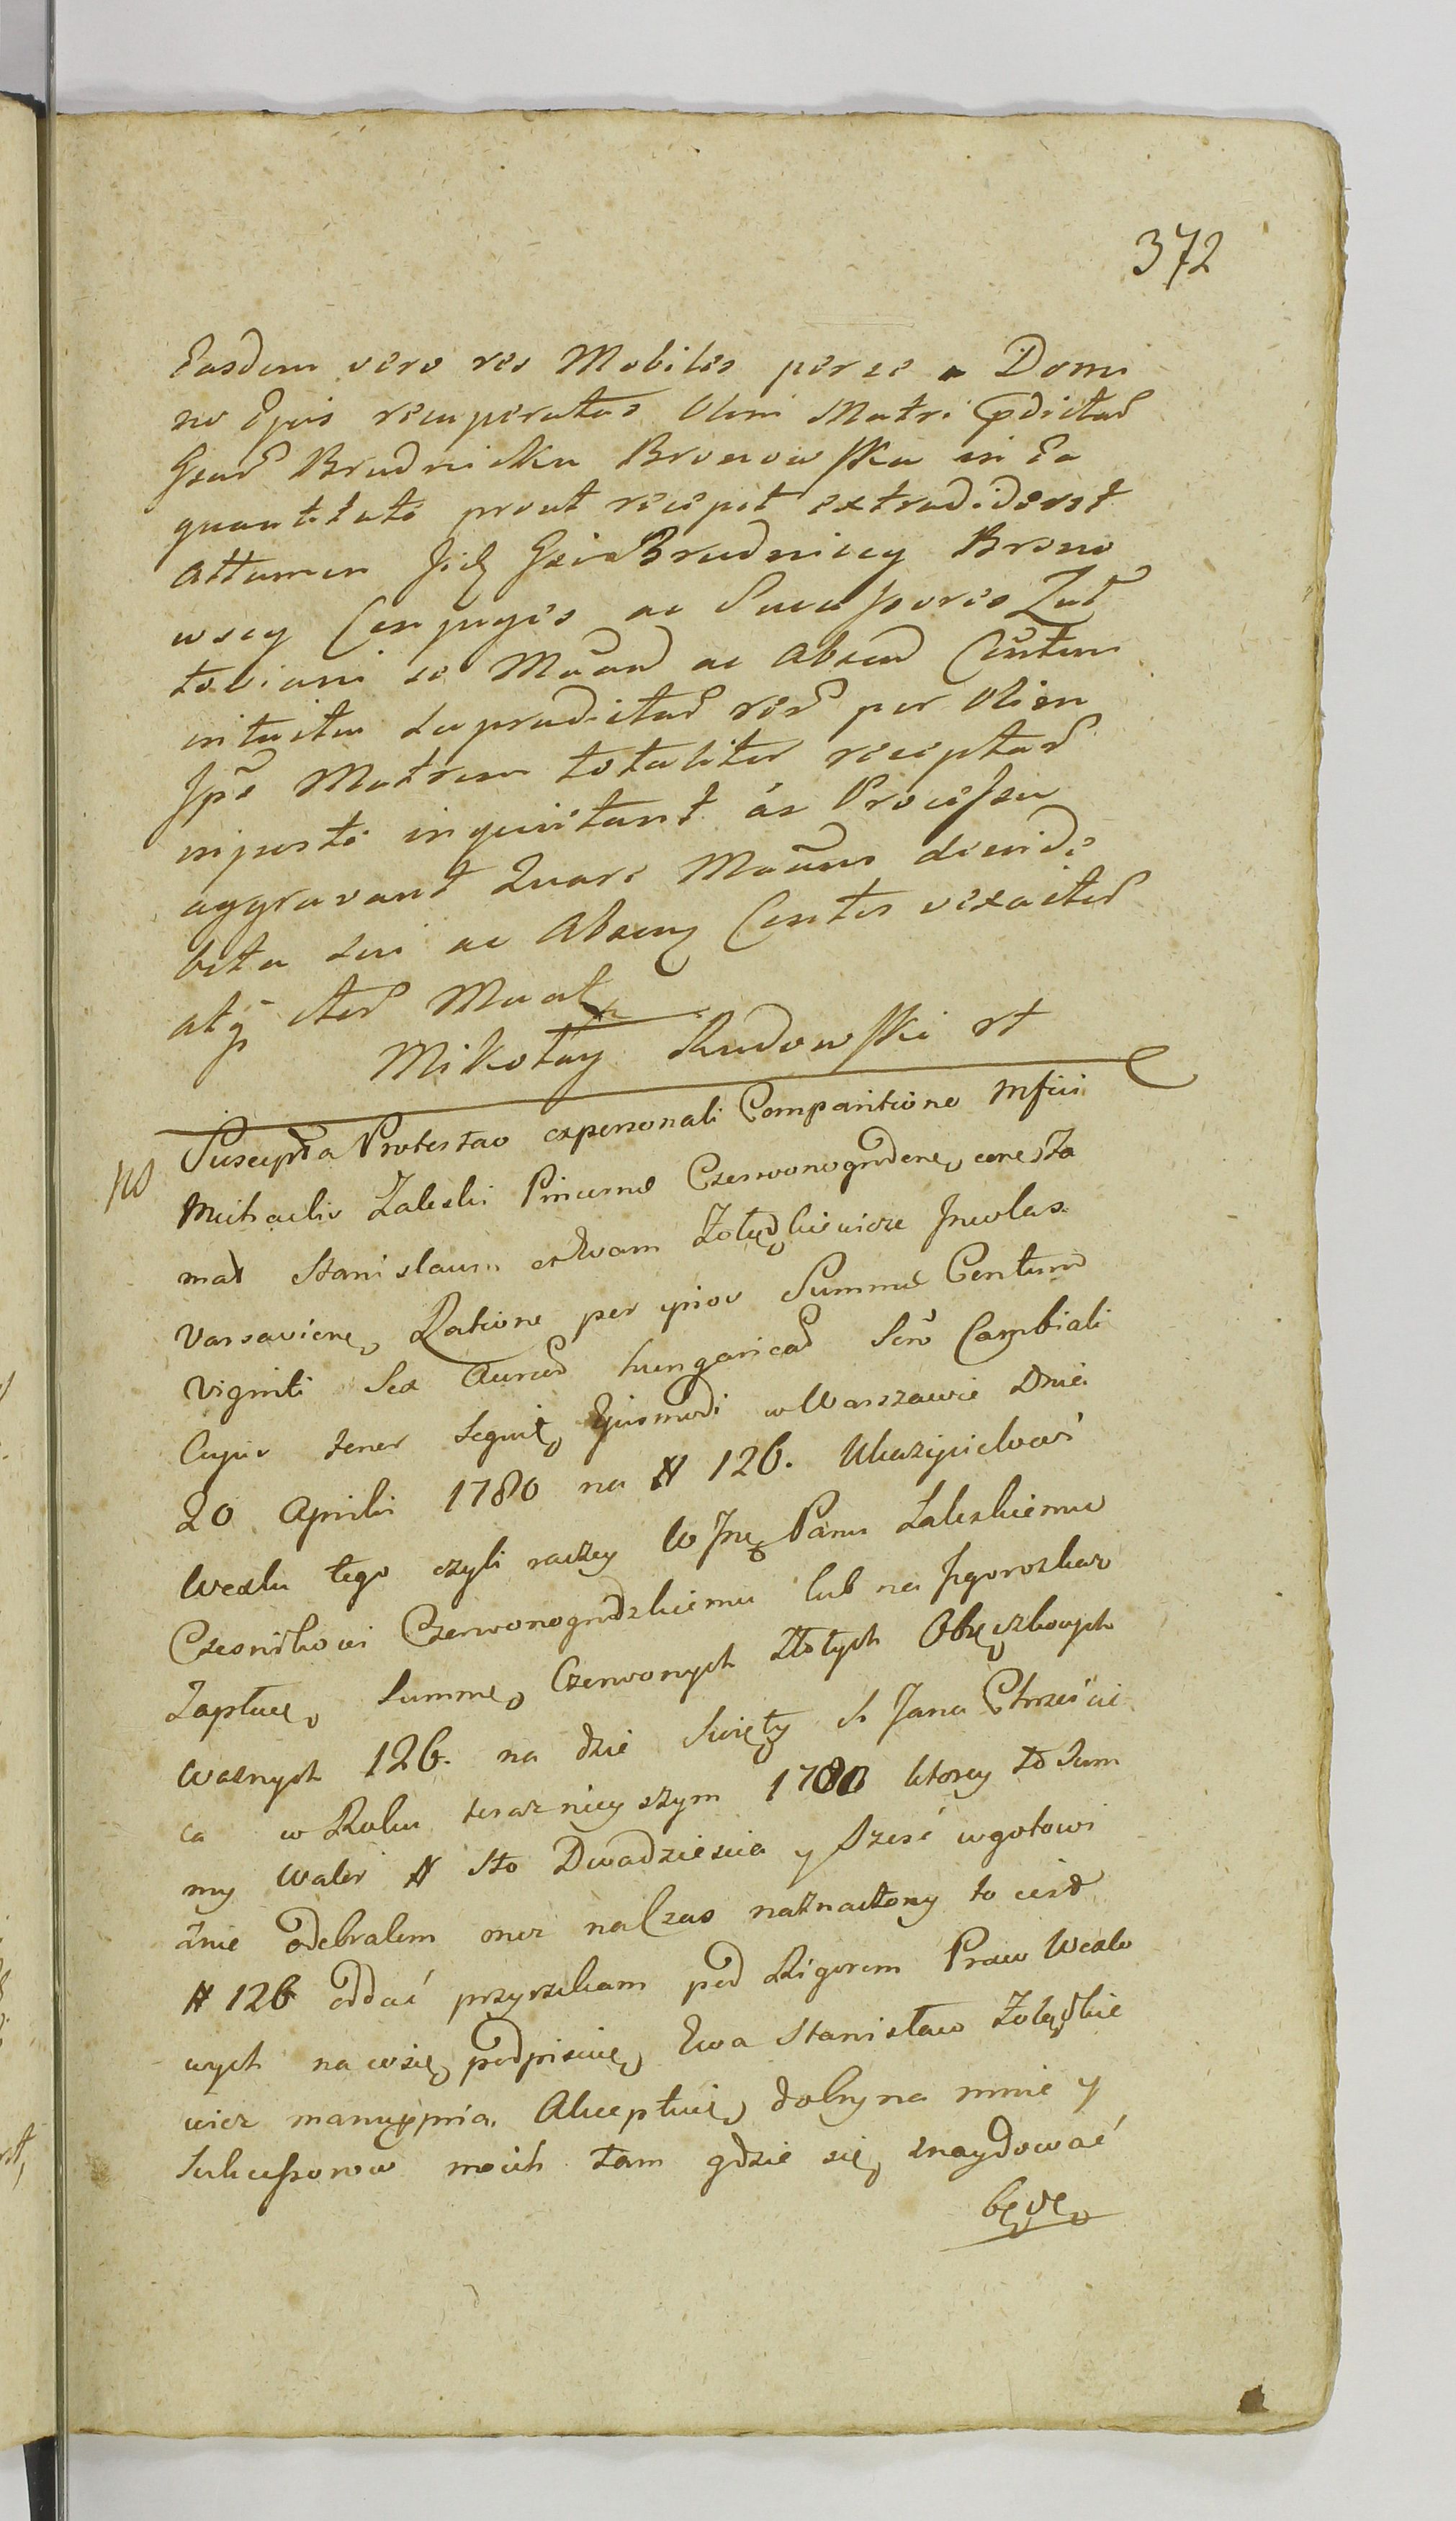 372
Easdem vero res Mobiles per se a Domi
no Ejus recuperatas Olim Matri pdictar
Gsar Brudnicka Bronowska in Ea
quantitate prout recepit extradiderat
attamen Jidz Gsi Brudniccy Brono
wscy Conjuges ac Successores Zut
toviani se Maand ac Absend Centum
intuitu supradictar rer per Olim
Jpse Matrem totaliter receptar
injuste inquietant ac Processu
aggravant Quare Maans de
bita sui ac Absenz Centes
atq iter Maat
Mikołay Rudowski rt
po Suscepta Protestao expersonali Comparitione Mfici
Michaelis Zaleski Pincerne Czerwonogrodene, conesta
mat Stanislaum et Evam Zołędkiewicze Jncolas
Varsaviene, Ratione per ipsos Summe Centum
Viginti Sex Aureor hungaricar Scro Cambiali
Cujus tenor sequit, Ejusmodi w Warszawie Dnia
20 Aprilis 1780 na # 126. Ukazicielowi
Wexlu tego czyli raczey W Jmę Panu Zaleskiemu
Czesnikowi Czerwonogrodzkiemu lub na Jgorozkaz
Zapłacę, summę, Czerwonych Złotych Obrączkowych
Ważnych 126. na dzie Swięty S Jana Chrzcicie
la w Roku terazniejszym 1780 ktorey to Sum
my Walor # Sto Dwadziescia y Szesć w gotowi
znie odebralem oraz na Czas naznaczony to iest
# 126 oddać przyrzekam pod Rigorem Praw Wexlo
wych na co się podpisuię, Ewa Stanisław Zolędkie
wicz manuppria. Akceptuię, dobry na mnie y
Sukcessorow moich tam gdzie się, znaydować
będę,